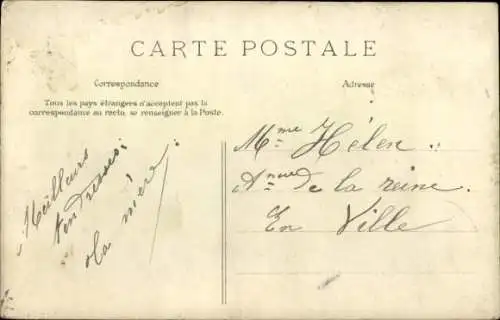 CARTE POSTALE
Correspondance
Tous les pays étrangers n'acceptent pas la
correspondance au recto, se renseigner à la Poste.
Adresse
Meilleurs
tendresses
la mère
Mme Hélen
Anue de la reine
En Ville